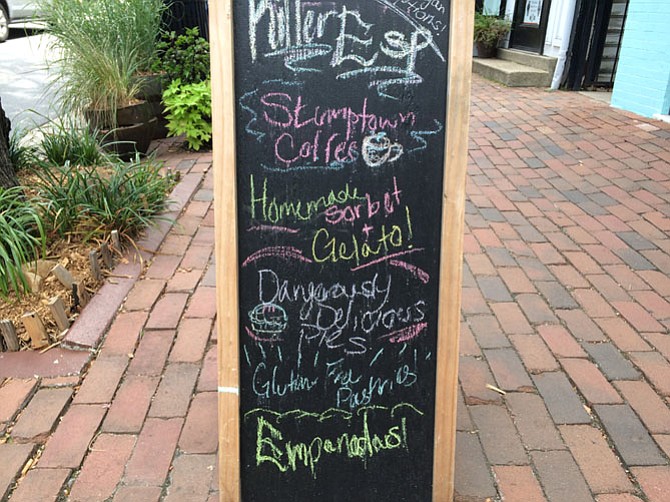 Killer Esp
Stumptown
Coffee
Homemade
Sorbet
+
Gelato!
Dangerously
Delicious
Pies
Gluten Free
Pastries!
Empanadas!